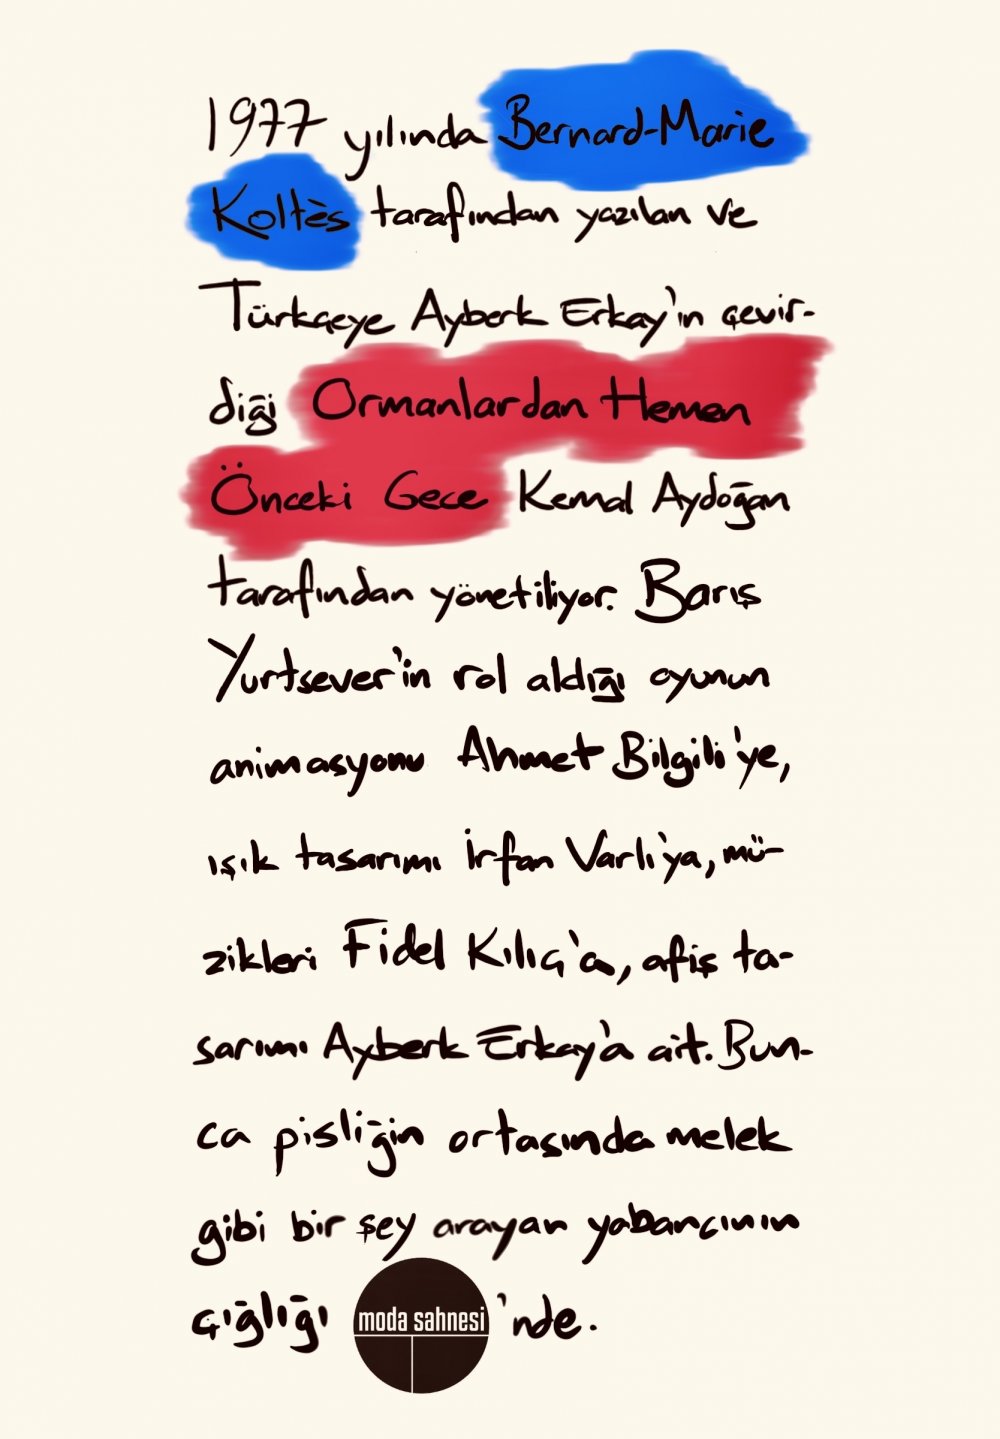 1977 yılında Bernard-Marie
Koltès tarafından yazılan ve
Türkçeye Ayberk Erkay'ın çevir-
diği Ormanlardan Hemen
Önceki Gece Kemal Aydoğan
tarafından yönetiliyor. Barış
Yurtsever'in rol aldığı oyunun
animasyonu Ahmet Bilgili'ye,
ışık tasarımı İrfan Varlı'ya, mü-
zikleri Fidel Kılıç'a, afiş ta-
sarımı Ayberk Erkay'a ait. Bun-
ca pisliğin ortasında melek
gibi bir şey arayan yabancının
çığlığı moda sahnesi'nde.